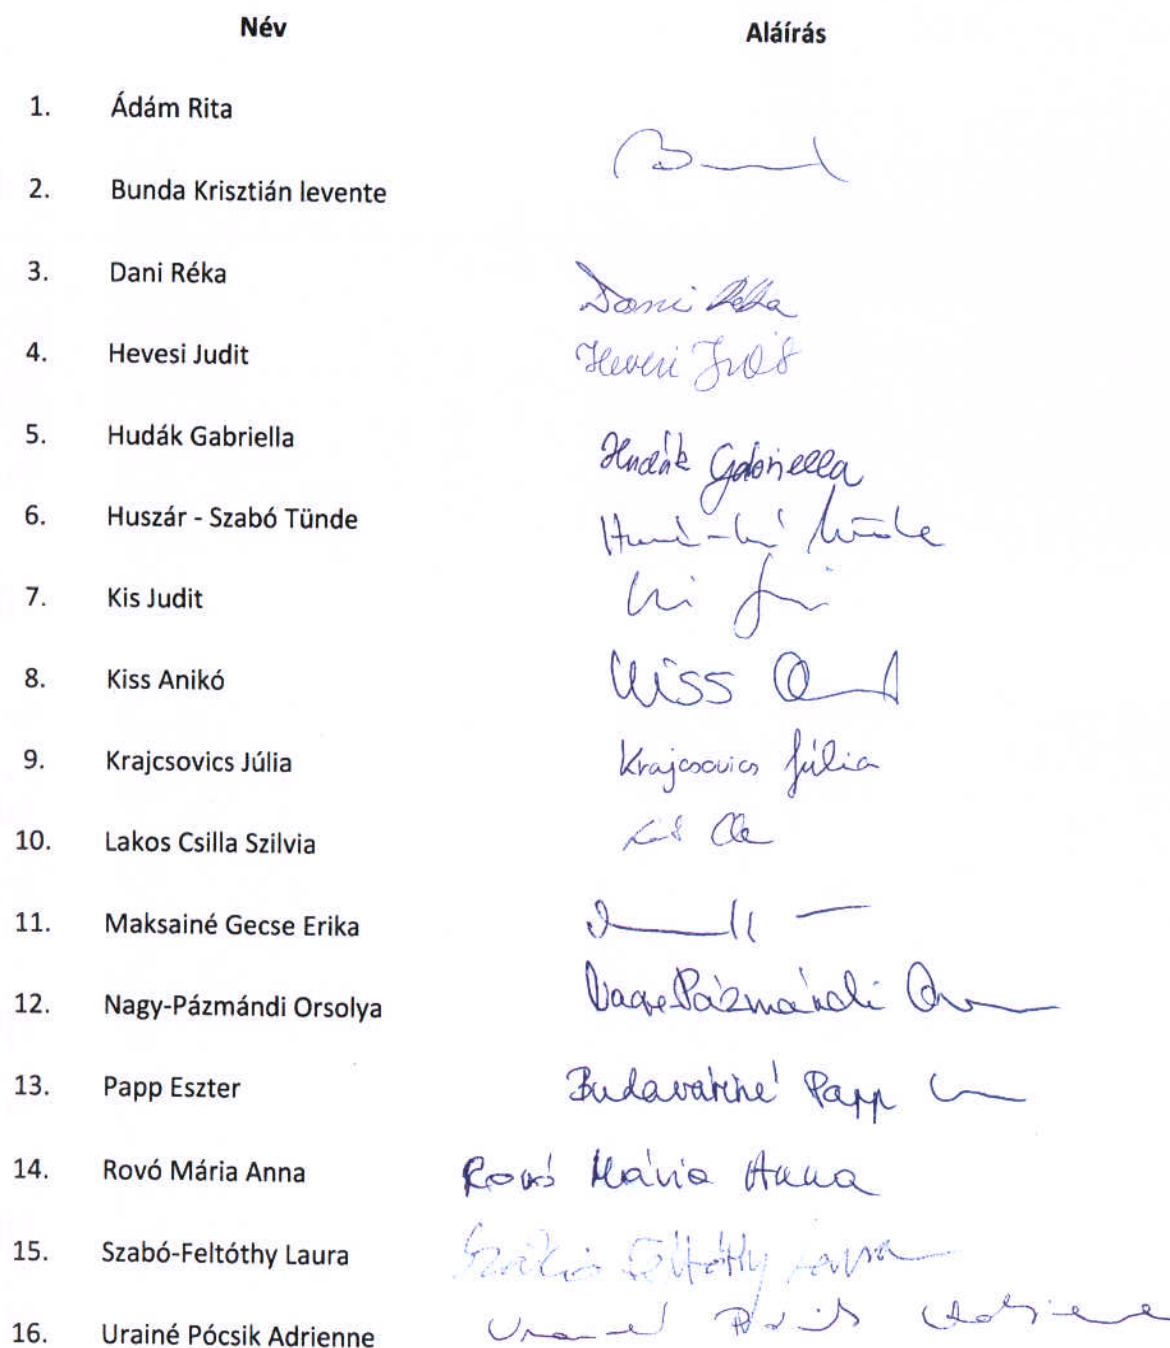 Név Aláírás
1. Ádám Rita
2. Bunda Krisztián levente
3. Dani Réka Dani Réka
4. Hevesi Judit Hevesi Judit
5. Hudák Gabriella Hudák Gabriella
6. Huszár - Szabó Tünde
7. Kis Judit
8. Kiss Anikó Kiss
9. Krajcsovics Júlia Krajcsovics Júlia
10. Lakos Csilla Szilvia
11. Maksainé Gecse Erika
12. Nagy-Pázmándi Orsolya Nagy-Pázmándi
13. Papp Eszter Budaváriné Papp
14. Rovó Mária Anna Rovó Mária Anna
15. Szabó-Feltóthy Laura Szabó Feltóthy Laura
16. Urainé Pócsik Adrienne Urainé Pócsik Adrienne